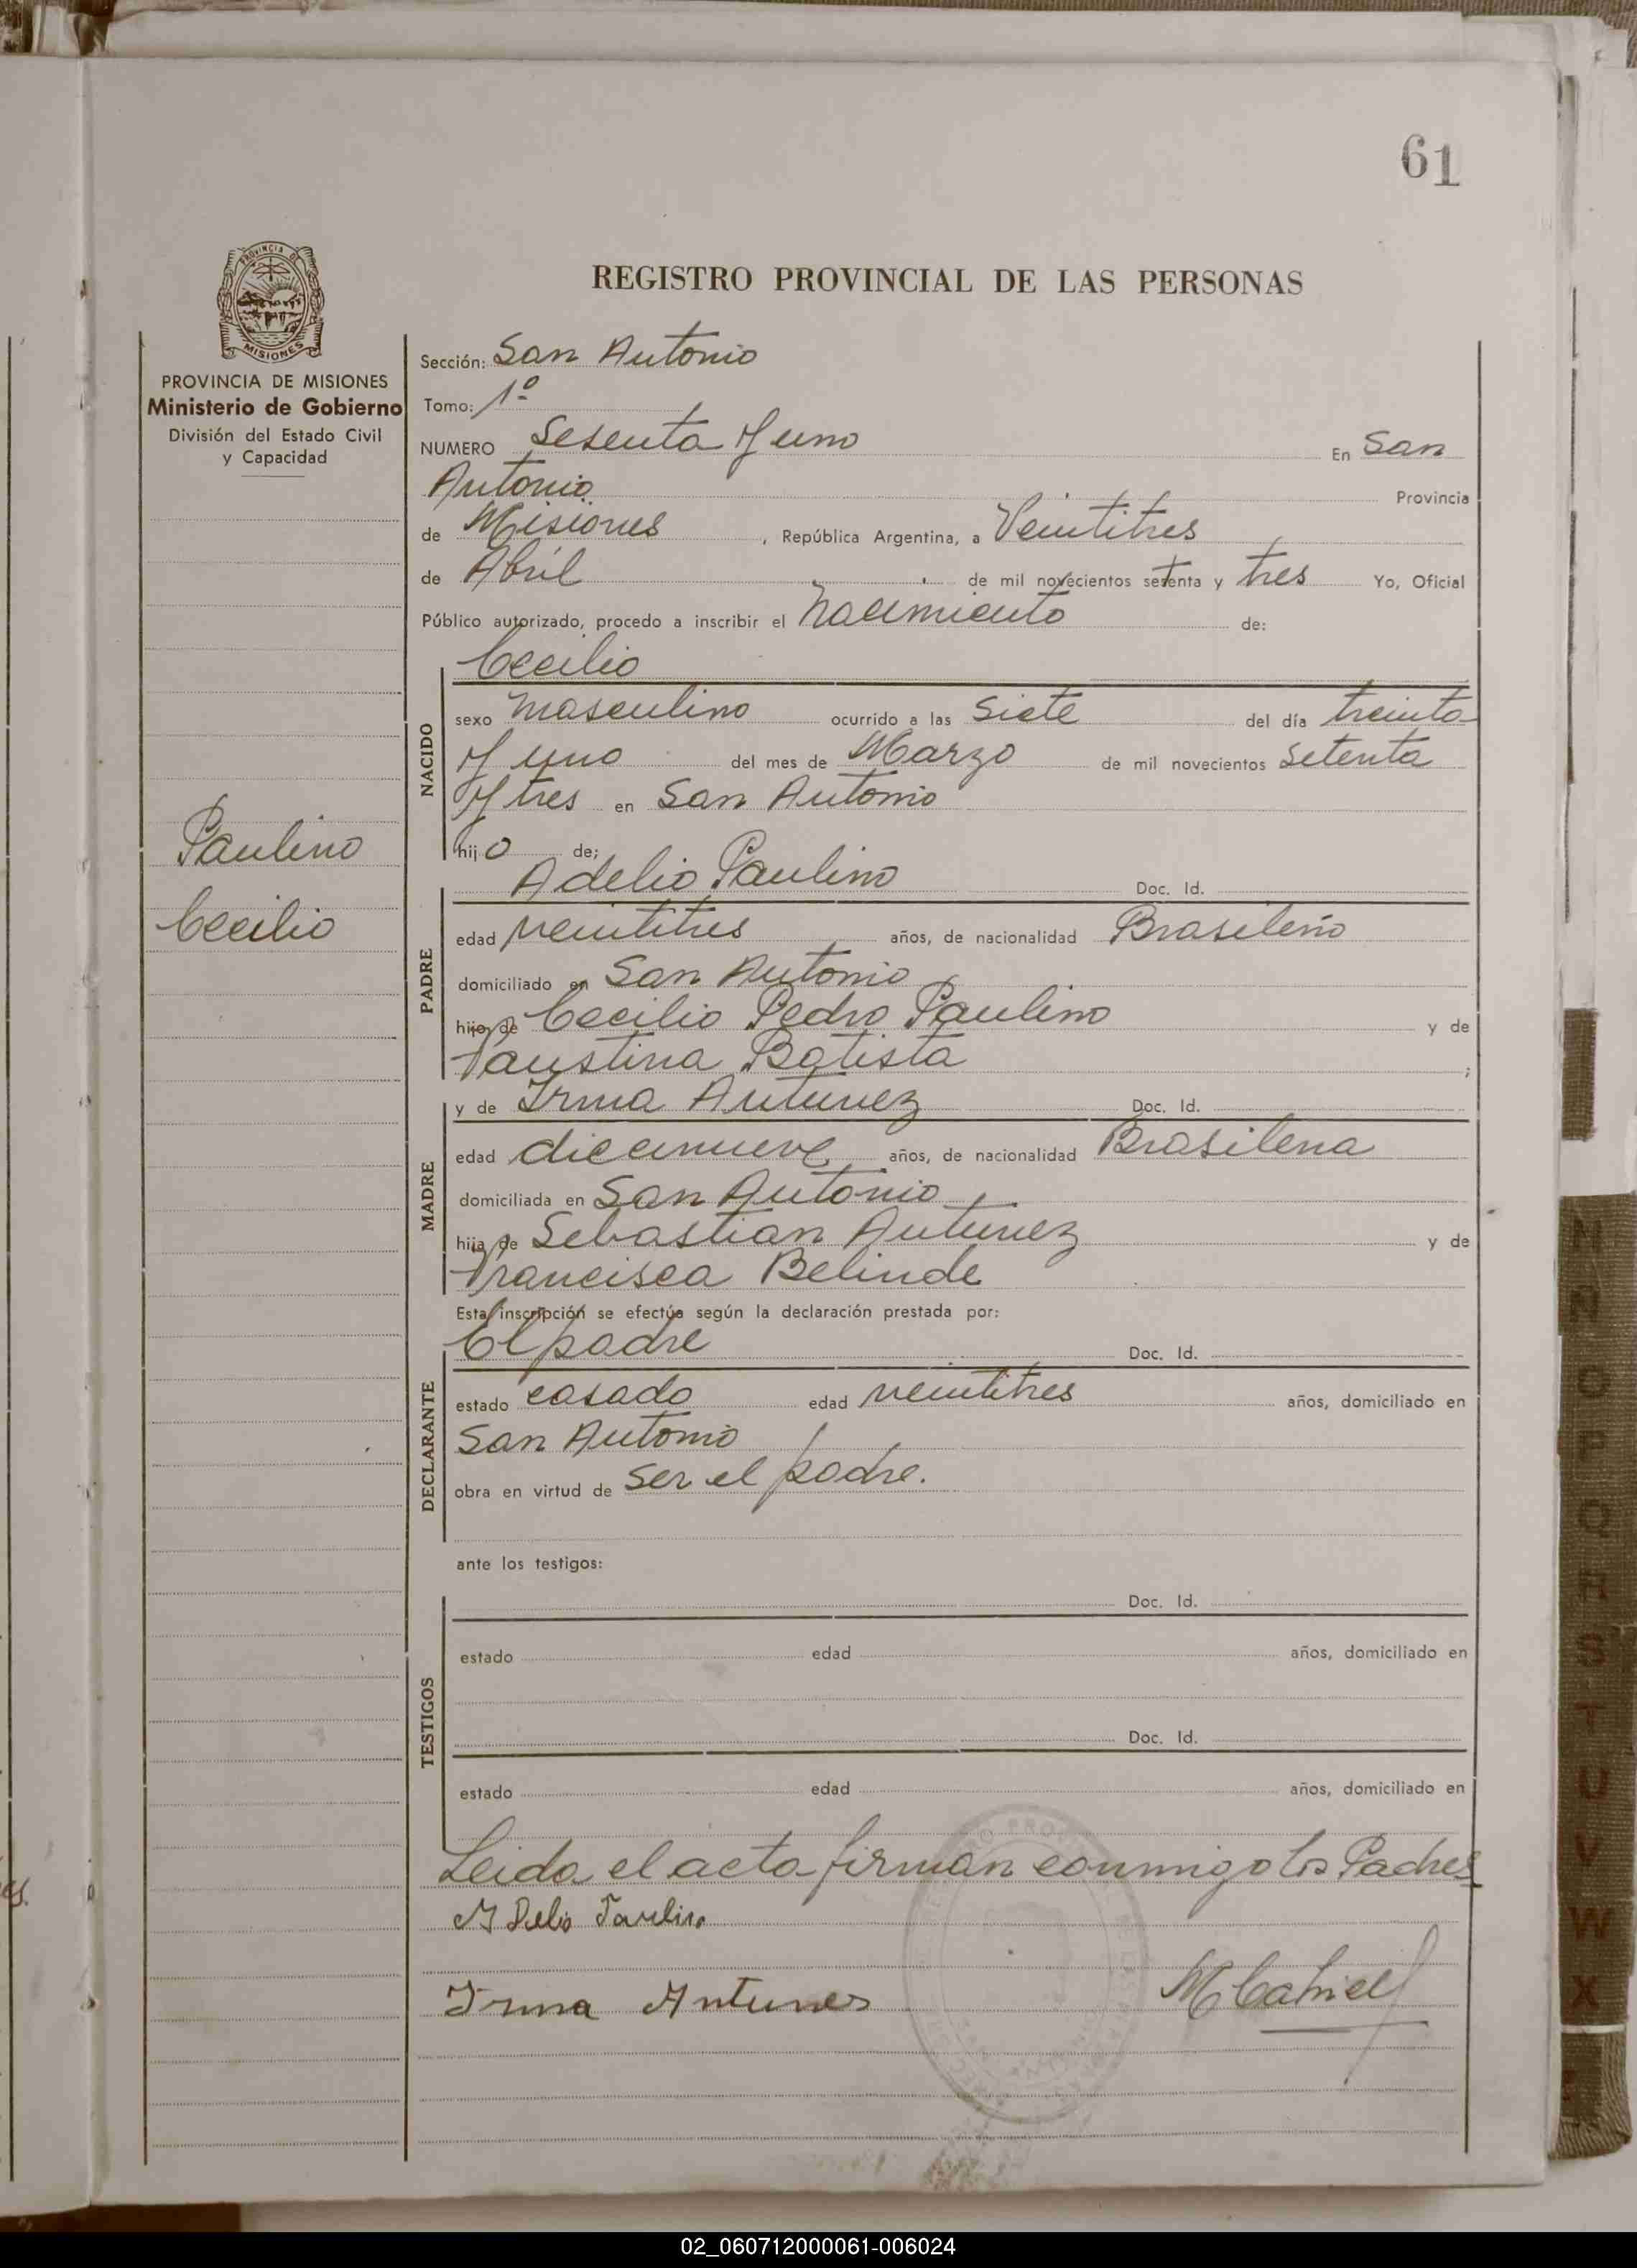 61
REGISTRO PROVINCIAL DE LAS PERSONAS
PROVINCIA DE
MISIONES
PROVINCIA DE MISIONES
Ministerio de Gobierno
División del Estado Civil
y Capacidad
Paulino
Cecilio
Sección: San Antonio
Tomo: 1º
NUMERO Sesenta y uno En San
Antonio Provincia
de Misiones, República Argentina, a Veintitres
de Abríl de mil novecientos setenta y tres Yo, Oficial
Público autorizado, procedo a inscribir el Nacimiento de:
Cecilio
NACIDO
sexo masculino ocurrido a las Siete del día treinta
y uno del mes de Marzo de mil novecientos setenta
y tres en San Antonio
hijo de;
PADRE
Adelio Paulino Doc. Id.
edad veintitres años, de nacionalidad Brasileño
domiciliado en San Antonio
hijo de Cecilio Pedro Paulino y de
Faustina Batista ;
MADRE
y de Irma Antunez Doc. Id.
edad diecinueve años, de nacionalidad Brasilena
domiciliada en San Antonio
hija de Sebastian Antunez y de
Francisca Belinde
Esta inscripción se efectúa según la declaración prestada por:
DECLARANTE
El padre Doc. Id.
estado casado edad veintitres años, domiciliado en
San Antonio
obra en virtud de ser el padre.
ante los testigos:
TESTIGOS
Doc. Id.
estado edad años, domiciliado en
Doc. Id.
estado edad años, domiciliado en
Leida el acta firman conmigo los Padres
Paulino
Irma Antunes
M N O P Q R S T U V W X
02_060712000061-006024